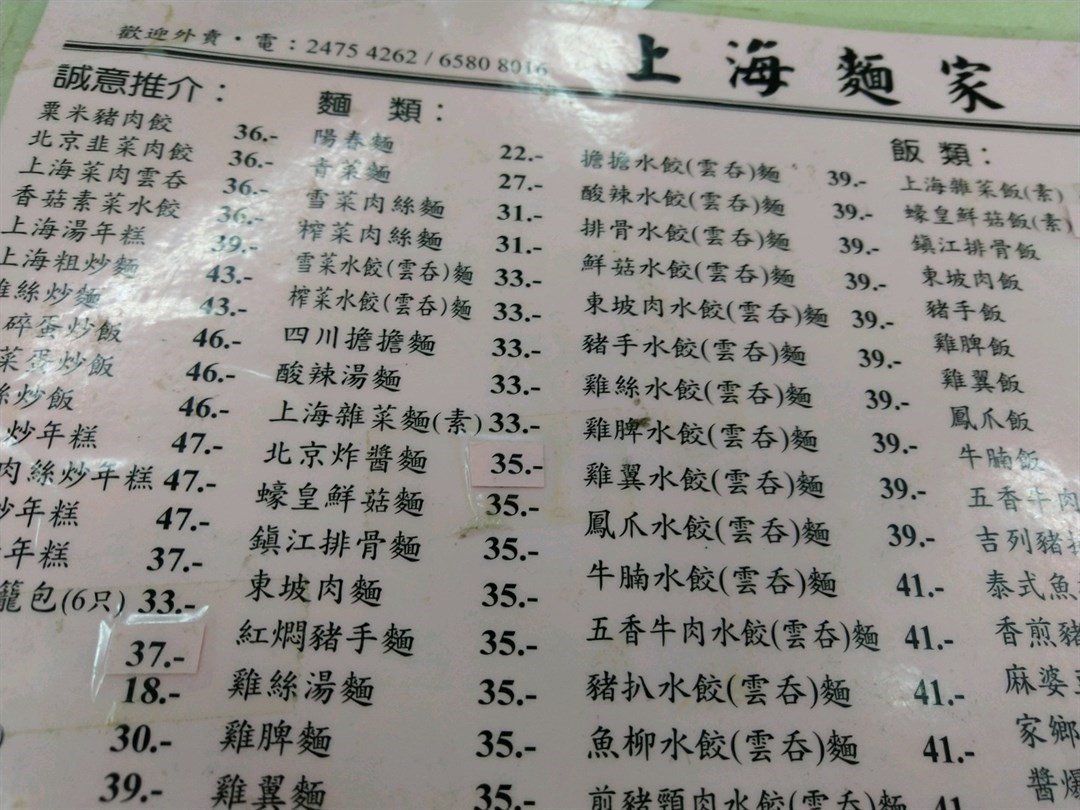 歡迎外賣・電：2475 4262 / 6580 8016
上海麵家
誠意推介：
粟米豬肉餃 36.-
北京韭菜肉餃 36.-
上海菜肉雲吞 36.-
香菇素菜水餃 36.-
上海湯年糕 39.-
上海粗炒麵 43.-
雞絲炒麵 43.-
碎蛋炒飯 46.-
菜蛋炒飯 46.-
絲炒飯 46.-
炒年糕 47.-
肉絲炒年糕 47.-
炒年糕 47.-
年糕 37.-
籠包(6只) 33.-
37.-
18.-
30.-
39.-
麵類：
陽春麵 22.-
青菜麵 27.-
雪菜肉絲麵 31.-
榨菜肉絲麵 31.-
雪菜水餃(雲吞)麵 33.-
榨菜水餃(雲吞)麵 33.-
四川擔擔麵 33.-
酸辣湯麵 33.-
上海雜菜麵(素) 33.-
北京炸醬麵 35.-
蠔皇鮮菇麵 35.-
鎮江排骨麵 35.-
東坡肉麵 35.-
紅燜豬手麵 35.-
雞絲湯麵 35.-
雞脾麵 35.-
雞翼麵 35.-
擔擔水餃(雲吞)麵 39.-
酸辣水餃(雲吞)麵 39.-
排骨水餃(雲吞)麵 39.-
鮮菇水餃(雲吞)麵 39.-
東坡肉水餃(雲吞)麵 39.-
豬手水餃(雲吞)麵 39.-
雞絲水餃(雲吞)麵 39.-
雞脾水餃(雲吞)麵 39.-
雞翼水餃(雲吞)麵 39.-
鳳爪水餃(雲吞)麵 39.-
牛腩水餃(雲吞)麵 41.-
五香牛肉水餃(雲吞)麵 41.-
豬扒水餃(雲吞)麵 41.-
魚柳水餃(雲吞)麵 41.-
煎豬頸肉水餃(雲吞)麵 41
飯類：
上海雜菜飯(素)
蠔皇鮮菇飯(素)
鎮江排骨飯
東坡肉飯
豬手飯
雞脾飯
雞翼飯
鳳爪飯
牛腩飯
五香牛肉
吉列豬扒
泰式魚
香煎豬
麻婆豆
家鄉
醬爆